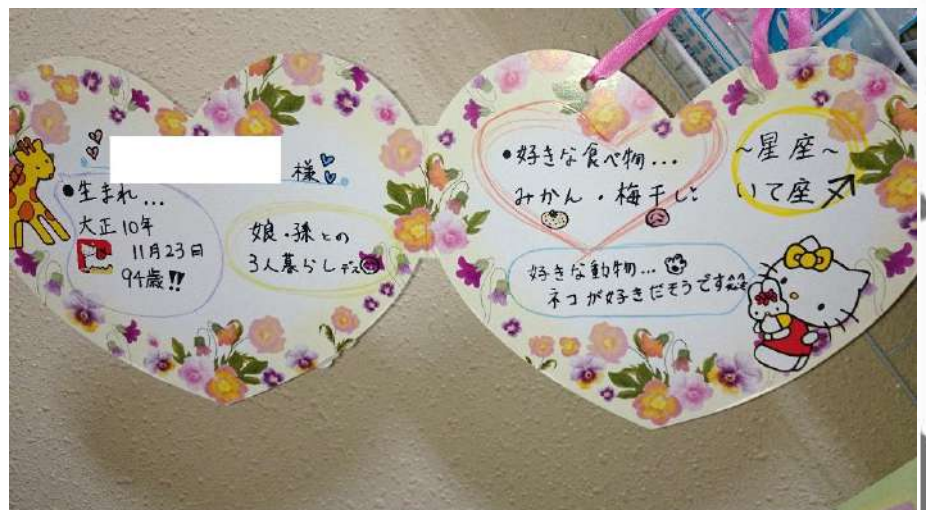 様
•生まれ...
大正10年
11月23日
94歳!!
娘・孫との
3人暮らしデス
•好きな食べ物...
みかん・梅干し
~星座~
いて座
好きな動物...
ネコが好きだそうです